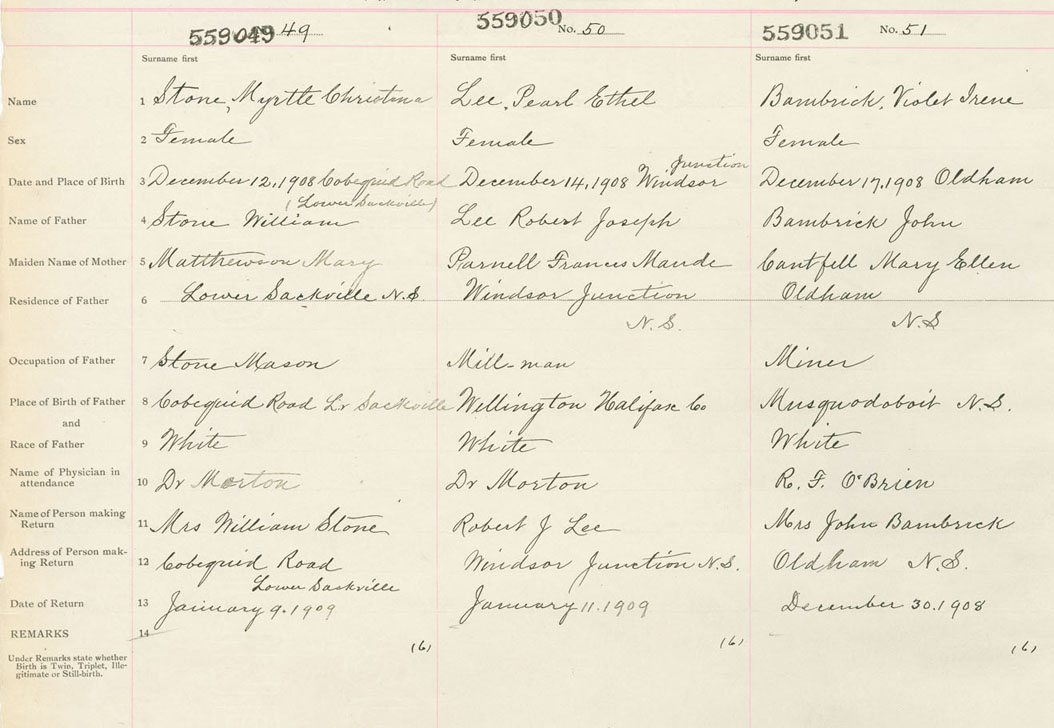 559049 49
559050 No. 50
559051 No. 51
Surname first Surname first Surname first
Name 1 Stone, Myrtle Christina Lee, Pearl Ethel Bambrick, Violet Irene
Sex 2 Female Female Female
Junction
Date and Place of Birth 3 December 12, 1908 Cobequid Road December 14, 1908 Windsor December 17, 1908 Oldham
(Lower Sackville)
Name of Father 4 Stone William Lee Robert Joseph Bambrick John
Maiden Name of Mother 5 Matthewson Mary Parnell Frances Maude Cantfell Mary Ellen
Residence of Father 6 Lower Sackville N.S. Windsor Junction Oldham
N.S. N.S
Occupation of Father 7 Stone Mason Mill-man Miner
Place of Birth of Father 8 Cobequid Road Lr Sackville Wellington Halifax Co Musquodoboit N.S.
and
Race of Father 9 White White White
Name of Physician in
attendance 10 Dr Morton Dr Morton R. F. O'Brien
Name of Person making
Return 11 Mrs William Stone Robert J Lee Mrs John Bambrick
Address of Person mak-
ing Return 12 Cobequid Road Windsor Junction N.S. Oldham N.S.
Lower Sackville
Date of Return 13 January 9. 1909 January 11. 1909 December 30. 1908
REMARKS 14
(6) (6) (6)
Under Remarks state whether
Birth is Twin, Triplet, Ille-
gitimate or Still-birth.